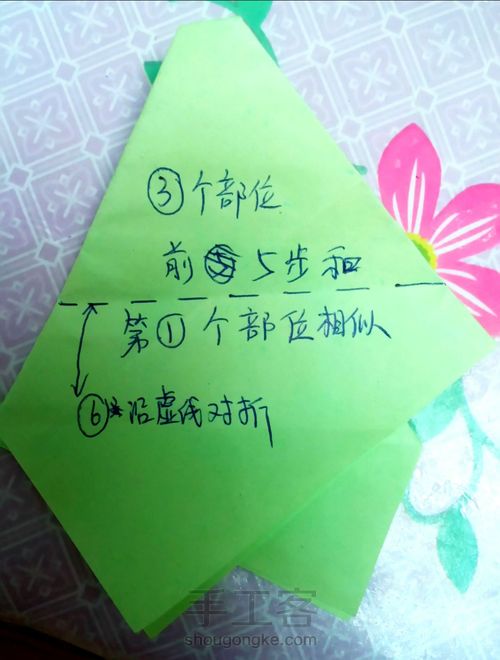 ③个部位
前 5步和
第①个部位相似
⑥沿虚线对折
手工客
shougongke.com